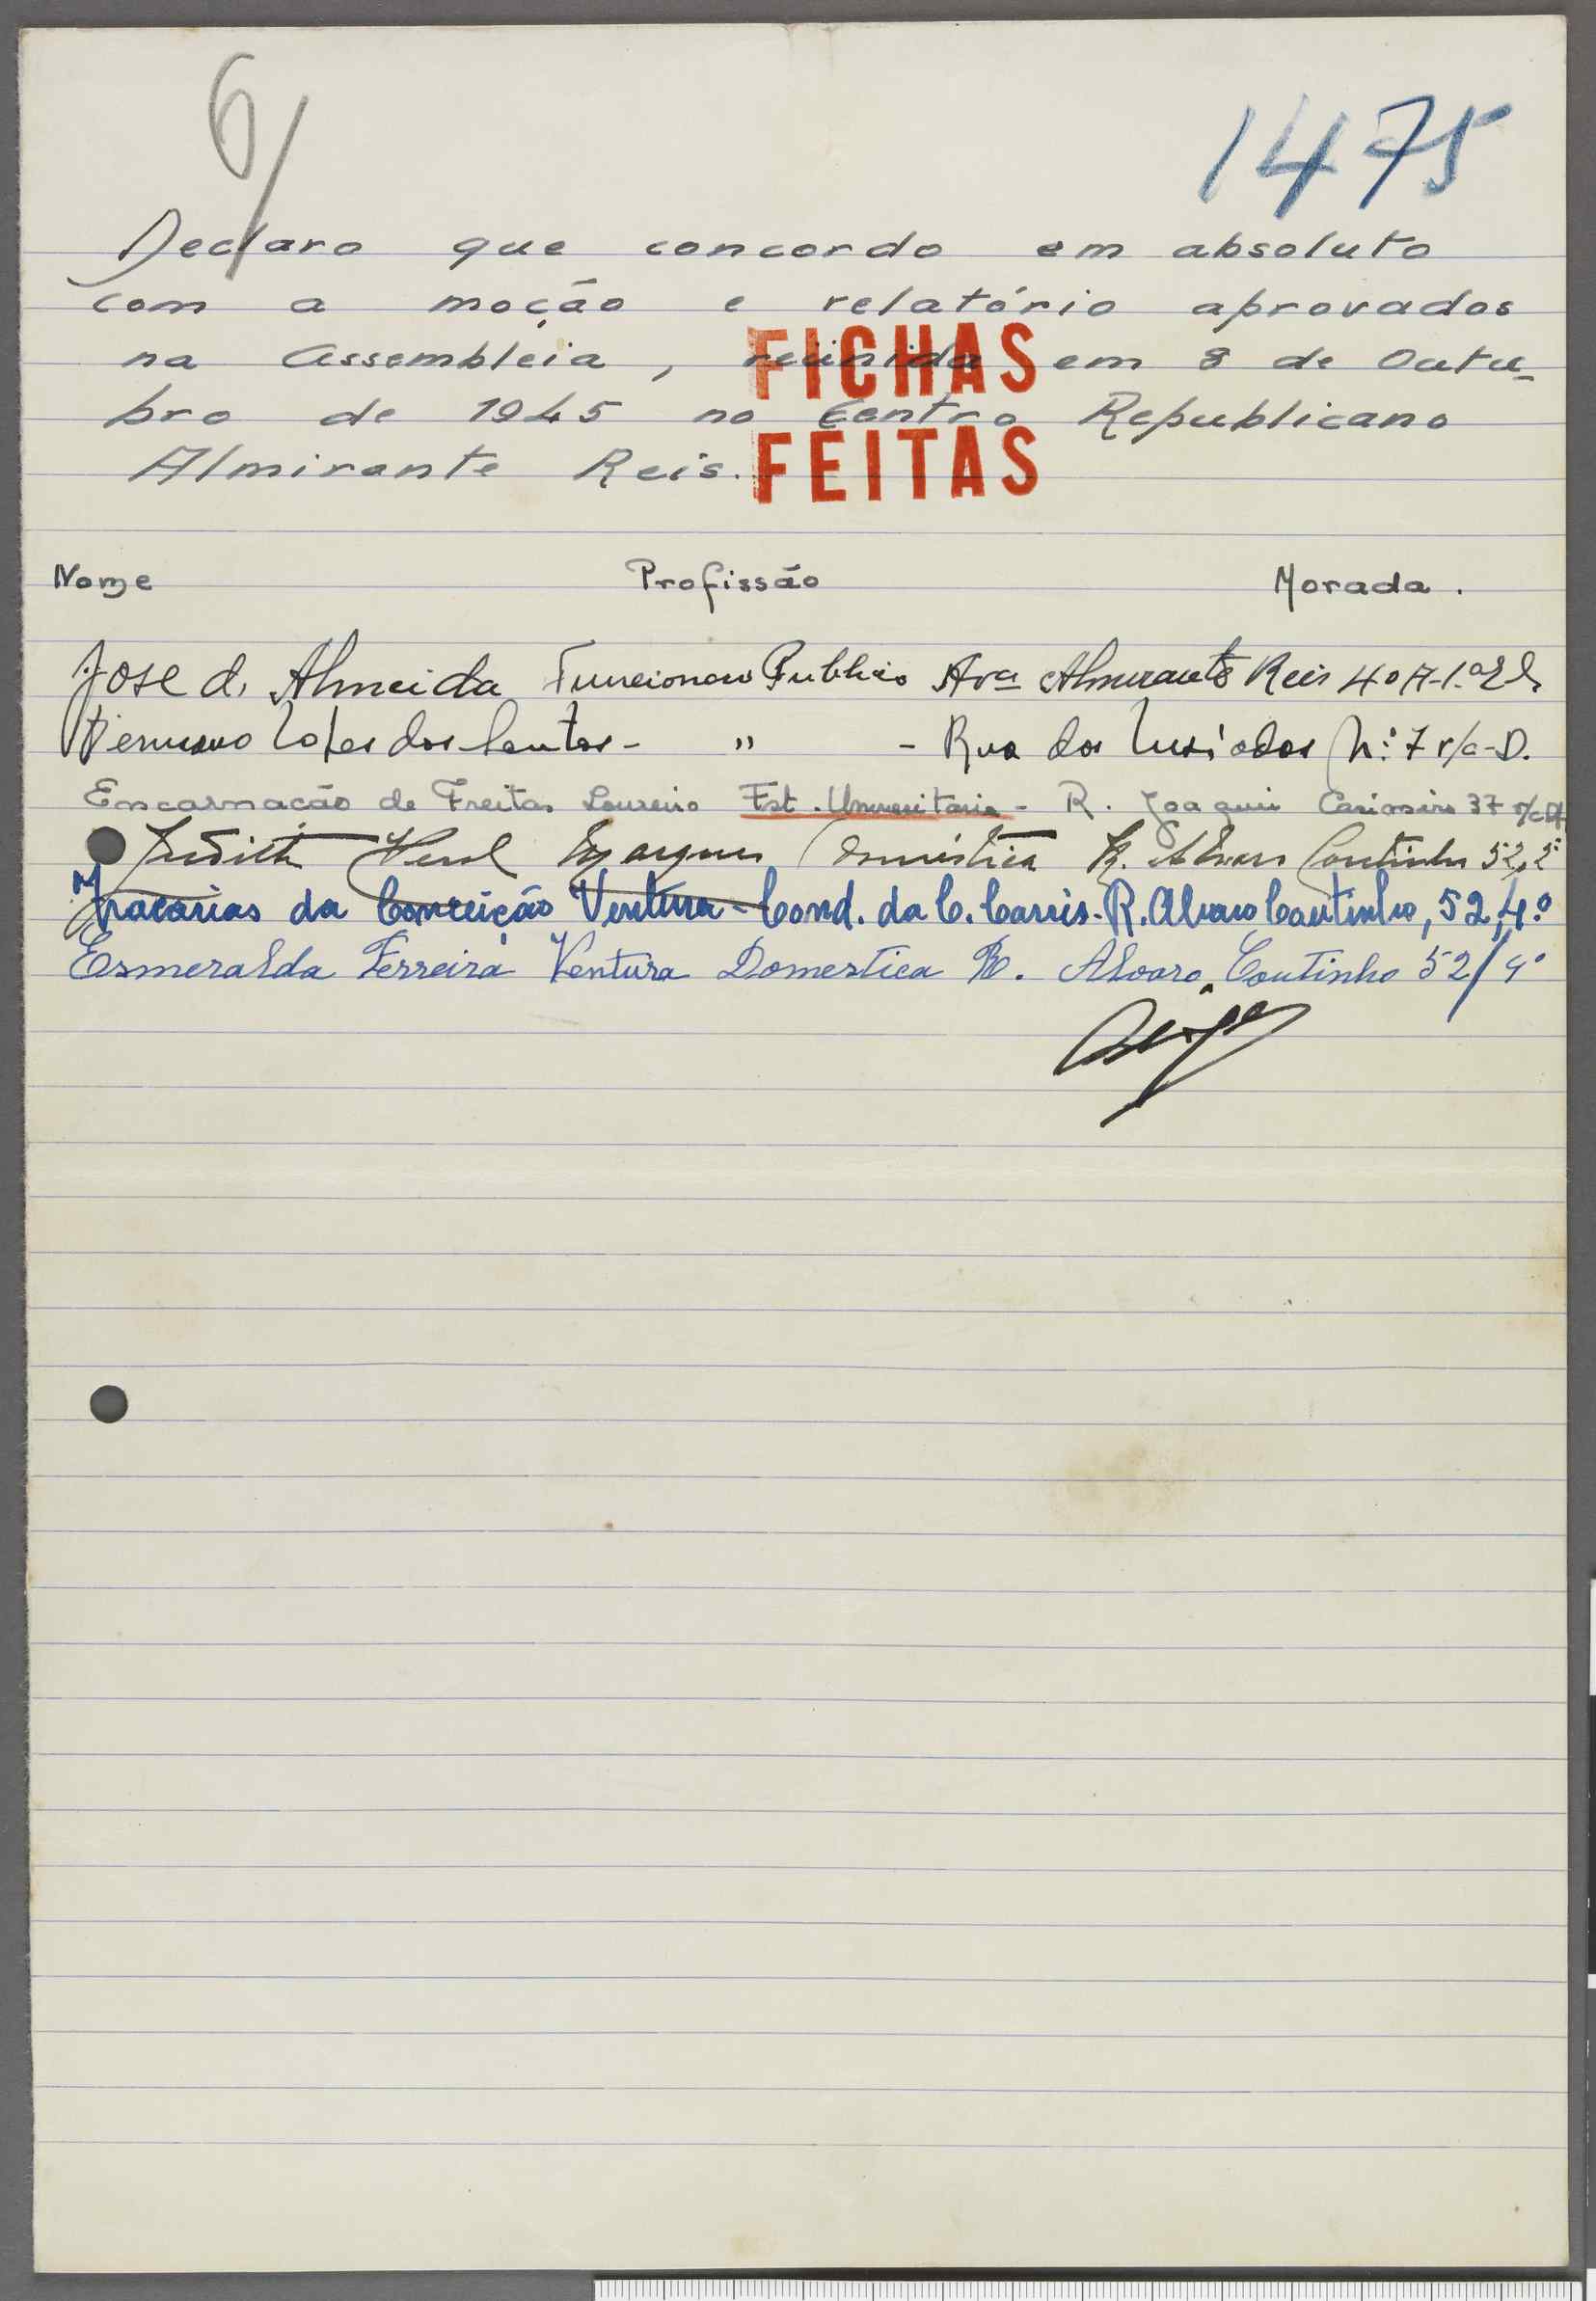 6/
1475
Declaro que concordo em absoluto
com a moção e relatório aprovados
na Assembleia, reünida em 8 de Outu-
bro de 1945 no Centro Republicano
Almirante Reis.
FICHAS
FEITAS
Nome Profissão Morada.
José d. Almeida Funcionario Publico Avª Almirante Reis 40 A-1.º E
Lopes dos Santos - " - Rua dos Lusiadas Nº 7 r/c-D.
Encarnação de Freitas Loureiro Est. Universitaria - R. Joaquim Casimiro 37 r/c Dt
Judith Marques Doméstica R. Alvaro Coutinho 52, 2º
da Conceição Ventura - Cond. da C. Carris - R. Alvaro Coutinho, 52, 4.º
Esmeralda Ferreira Ventura Domestica R. Alvaro Coutinho 52/4º